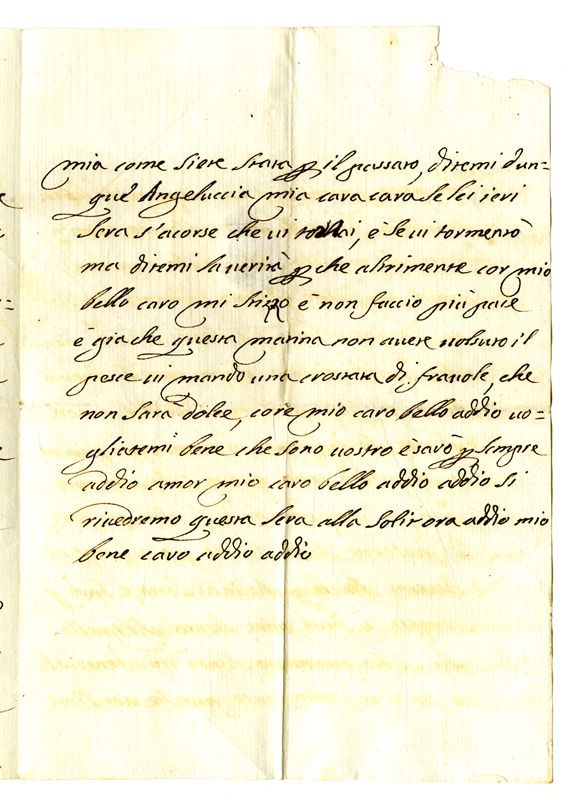 mia come siete stata p il passato, ditemi dun=
que Angeluccia mia cara cara se lei ieri
sera s'acorse che vi toccai, è se vi tormentò
ma ditemi la verità p che altrimente cor mio
bello caro mi stizzo è non faccio più pace
è gia che questa matina non avete volsuto il
pesce vi mando una crostata di fravole, che
non sarà dolce, core mio caro bello addio vo=
gliatemi bene che sono vostro è sarò p sempre
addio amor mio caro bello addio addio si
rivedremo questa sera alla solit ora addio mio
bene caro addio addio